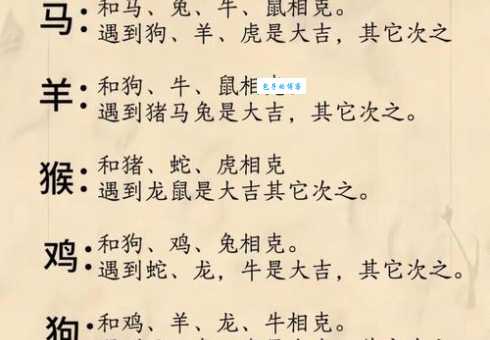 马：和马、兔、牛、鼠相克。
遇到狗、羊、虎是大吉，其它次之
羊：和狗、牛、鼠相
遇到猪马兔是大吉，其它次之。
猴：和猪、蛇、虎相克
遇到龙鼠是大吉其它次之。
鸡：和狗、鸡、兔相克。
遇到蛇、龙，牛是大吉，其它次之。
狗：和鸡、羊、龙、牛相克。